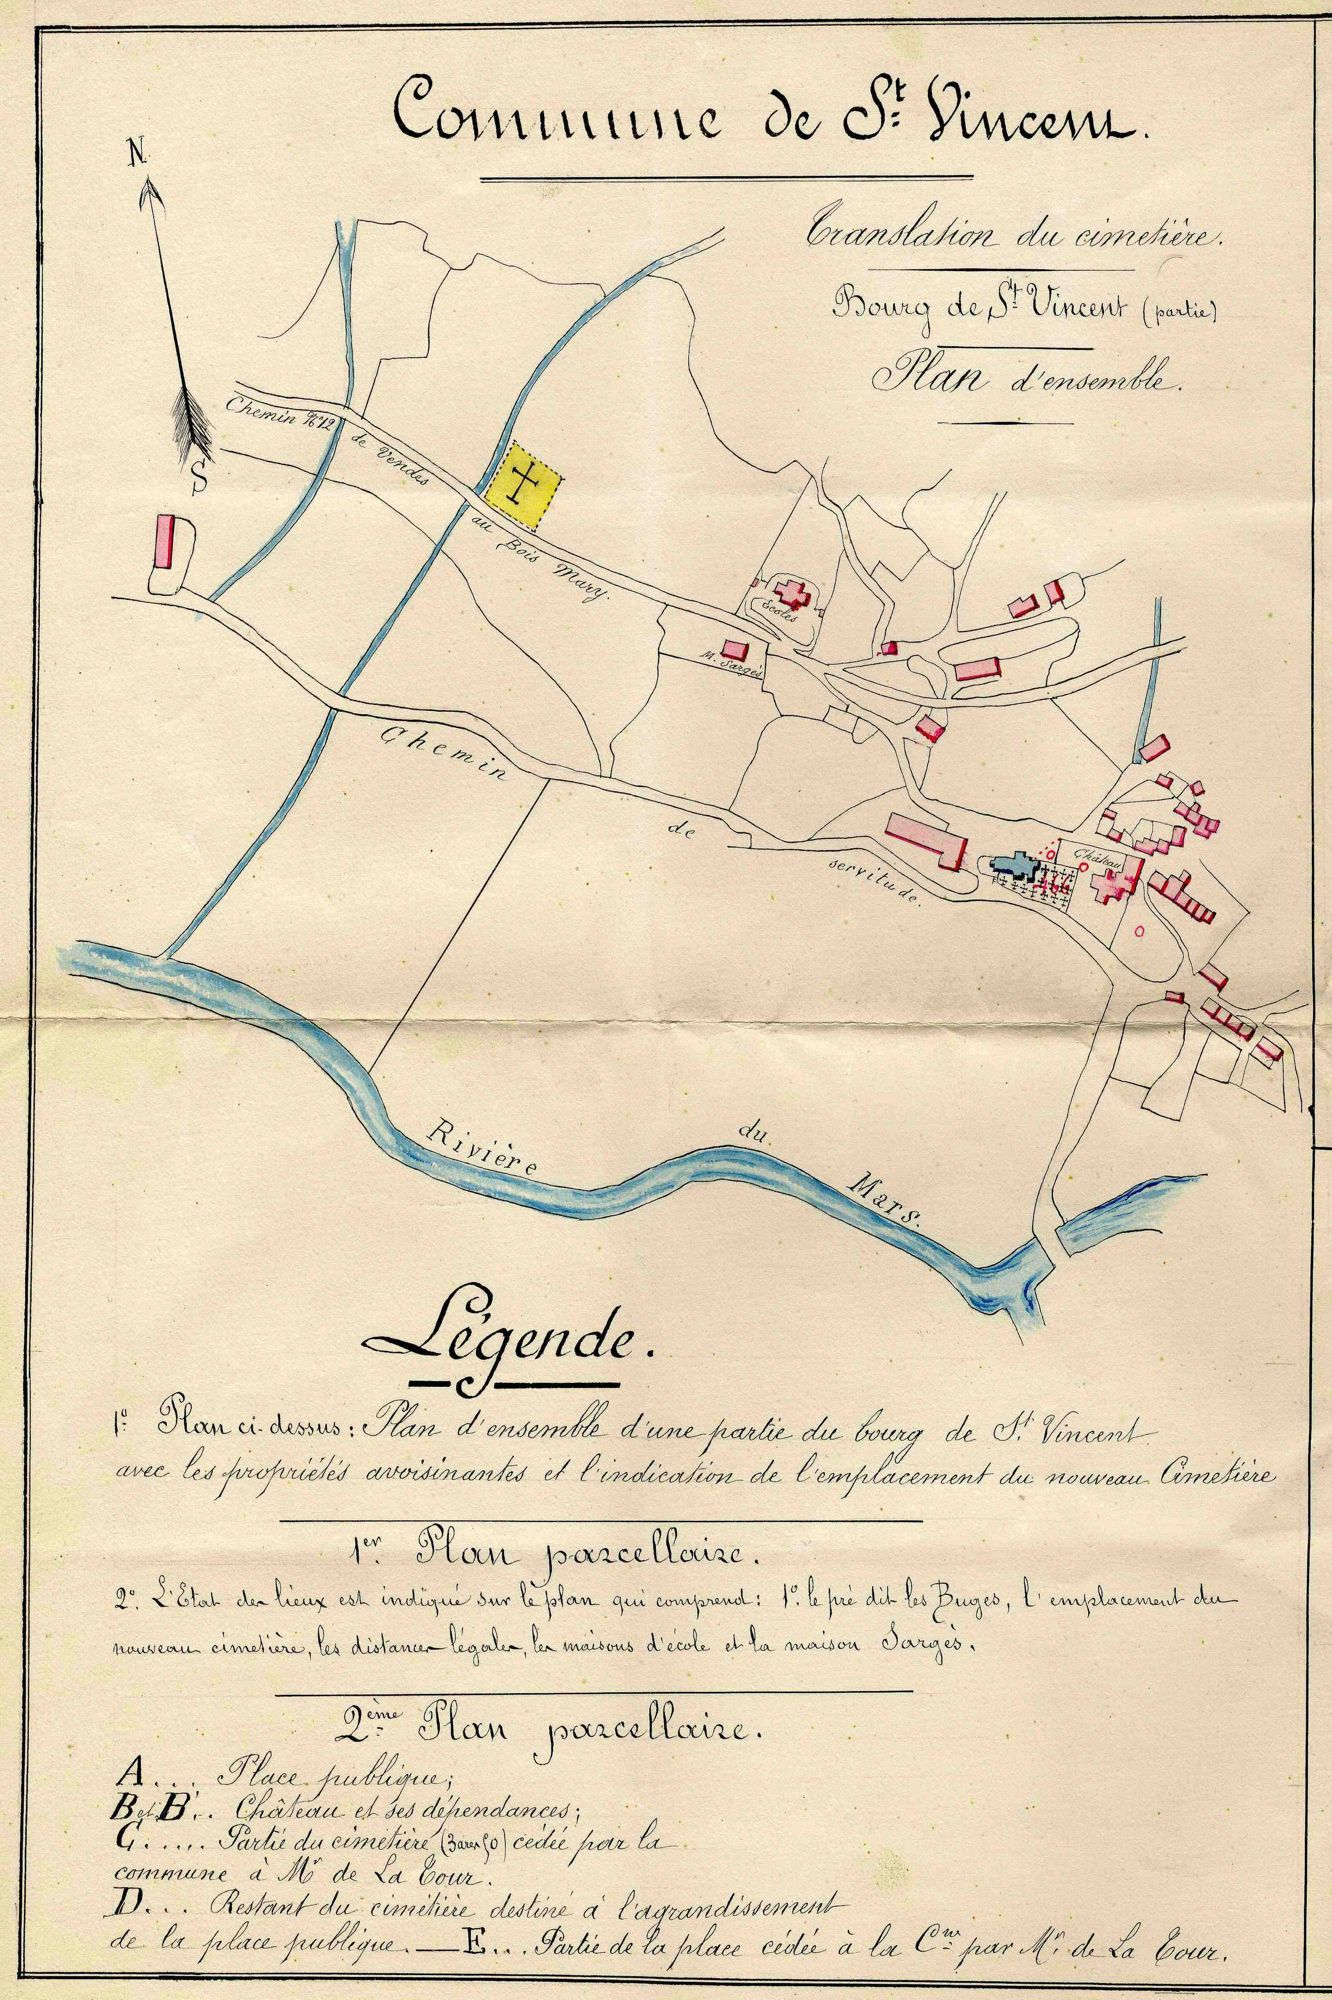 Commune de St. Vincent.
N
Translation du cimetière.
Bourg de St. Vincent (partie)
Plan d'ensemble.
Chemin No 12 de Vendes au Bois Mary.
S
Ecoles
M. Sargès
Chemin de servitude.
Château
Rivière du Mars.
Légende.
1o. Plan ci-dessus: Plan d'ensemble d'une partie du bourg de St. Vincent
avec les propriétés avoisinantes et l'indication de l'emplacement du nouveau Cimetière
1er. Plan parcellaire.
2o. L'Etat des lieux est indiqué sur le plan qui comprend: 1o. le pré dit les Buges, l'emplacement du
nouveau cimetière, les distances légales, les maisons d'école et la maison Sargès.
2ème Plan parcellaire.
A... Place publique;
B et B'... Château et ses dépendances;
C..... Partie du cimetière (3 ares 50) cédée par la
commune à Mr de La Tour.
D... Restant du cimétière destiné à l'agrandissement
de la place publique. — E... Partie de la place cédée à la Cne par Mr. de La Tour.